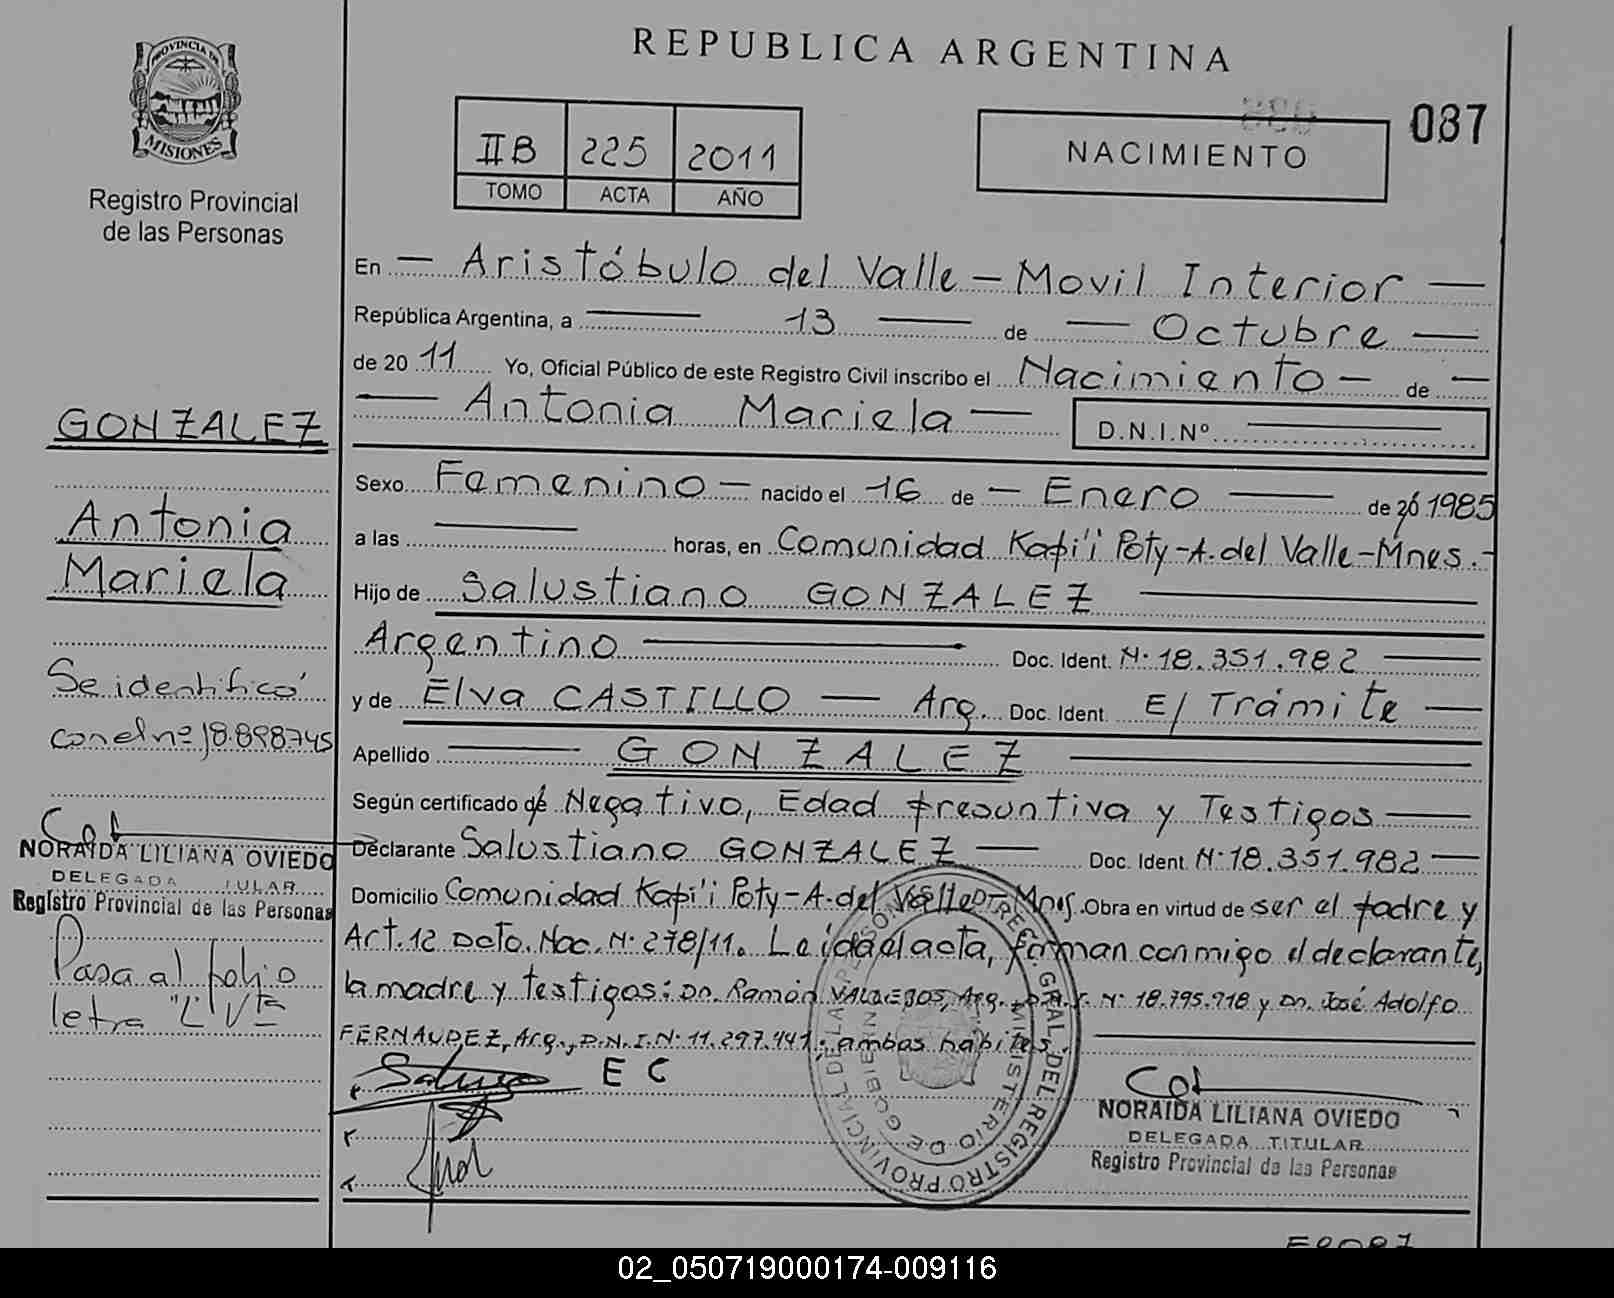 PROVINCIA DE
MISIONES
Registro Provincial
de las Personas
GONZALEZ
Antonia
Mariela
Se identificó
con el nº 18.898745
NORAIDA LILIANA OVIEDO
DELEGADA TITULAR
Registro Provincial de las Personas
Pasa al folio
letra "L" Vta
REPUBLICA ARGENTINA
087
IIB 225 2011
TOMO ACTA AÑO
NACIMIENTO
En — Aristóbulo del Valle – Movil Interior —
República Argentina, a — 13 — de — Octubre —
de 20 11 Yo, Oficial Público de este Registro Civil inscribo el Nacimiento — de —
— Antonia Mariela — D.N.I.Nº —
Sexo Femenino — nacido el 16 de — Enero — de 20 1985
a las — horas, en Comunidad Kapi'i Poty-A. del Valle-Mnes.-
Hijo de Salustiano GONZALEZ —
Argentino — Doc. Ident. N· 18.351.982 —
y de Elva CASTILLO — Arg. Doc. Ident. E/ Trámite —
Apellido — GONZALEZ —
Según certificado de Negativo, Edad presuntiva y Testigos —
Declarante Salustiano GONZALEZ — Doc. Ident. N· 18.351.982 —
Domicilio Comunidad Kapi'i Poty-A. del Valle Mnes. Obra en virtud de ser el padre y
Art. 12 Dcto. Nac. N· 278/11. Leída el acta, forman conmigo el declarante,
la madre y testigos: Dn. Ramón Arg. N· 18.795.918 y Dn. José Adolfo
FERNANDEZ, Arg., D.N.I. N· 11.297.441; ambos hábiles.
E C
DIREC. GRAL. DEL REGISTRO PROVINCIAL DE LAS PERSONAS
MINISTERIO DE GOBIERNO
NORAIDA LILIANA OVIEDO
DELEGADA TITULAR
Registro Provincial de las Personas
02_050719000174-009116